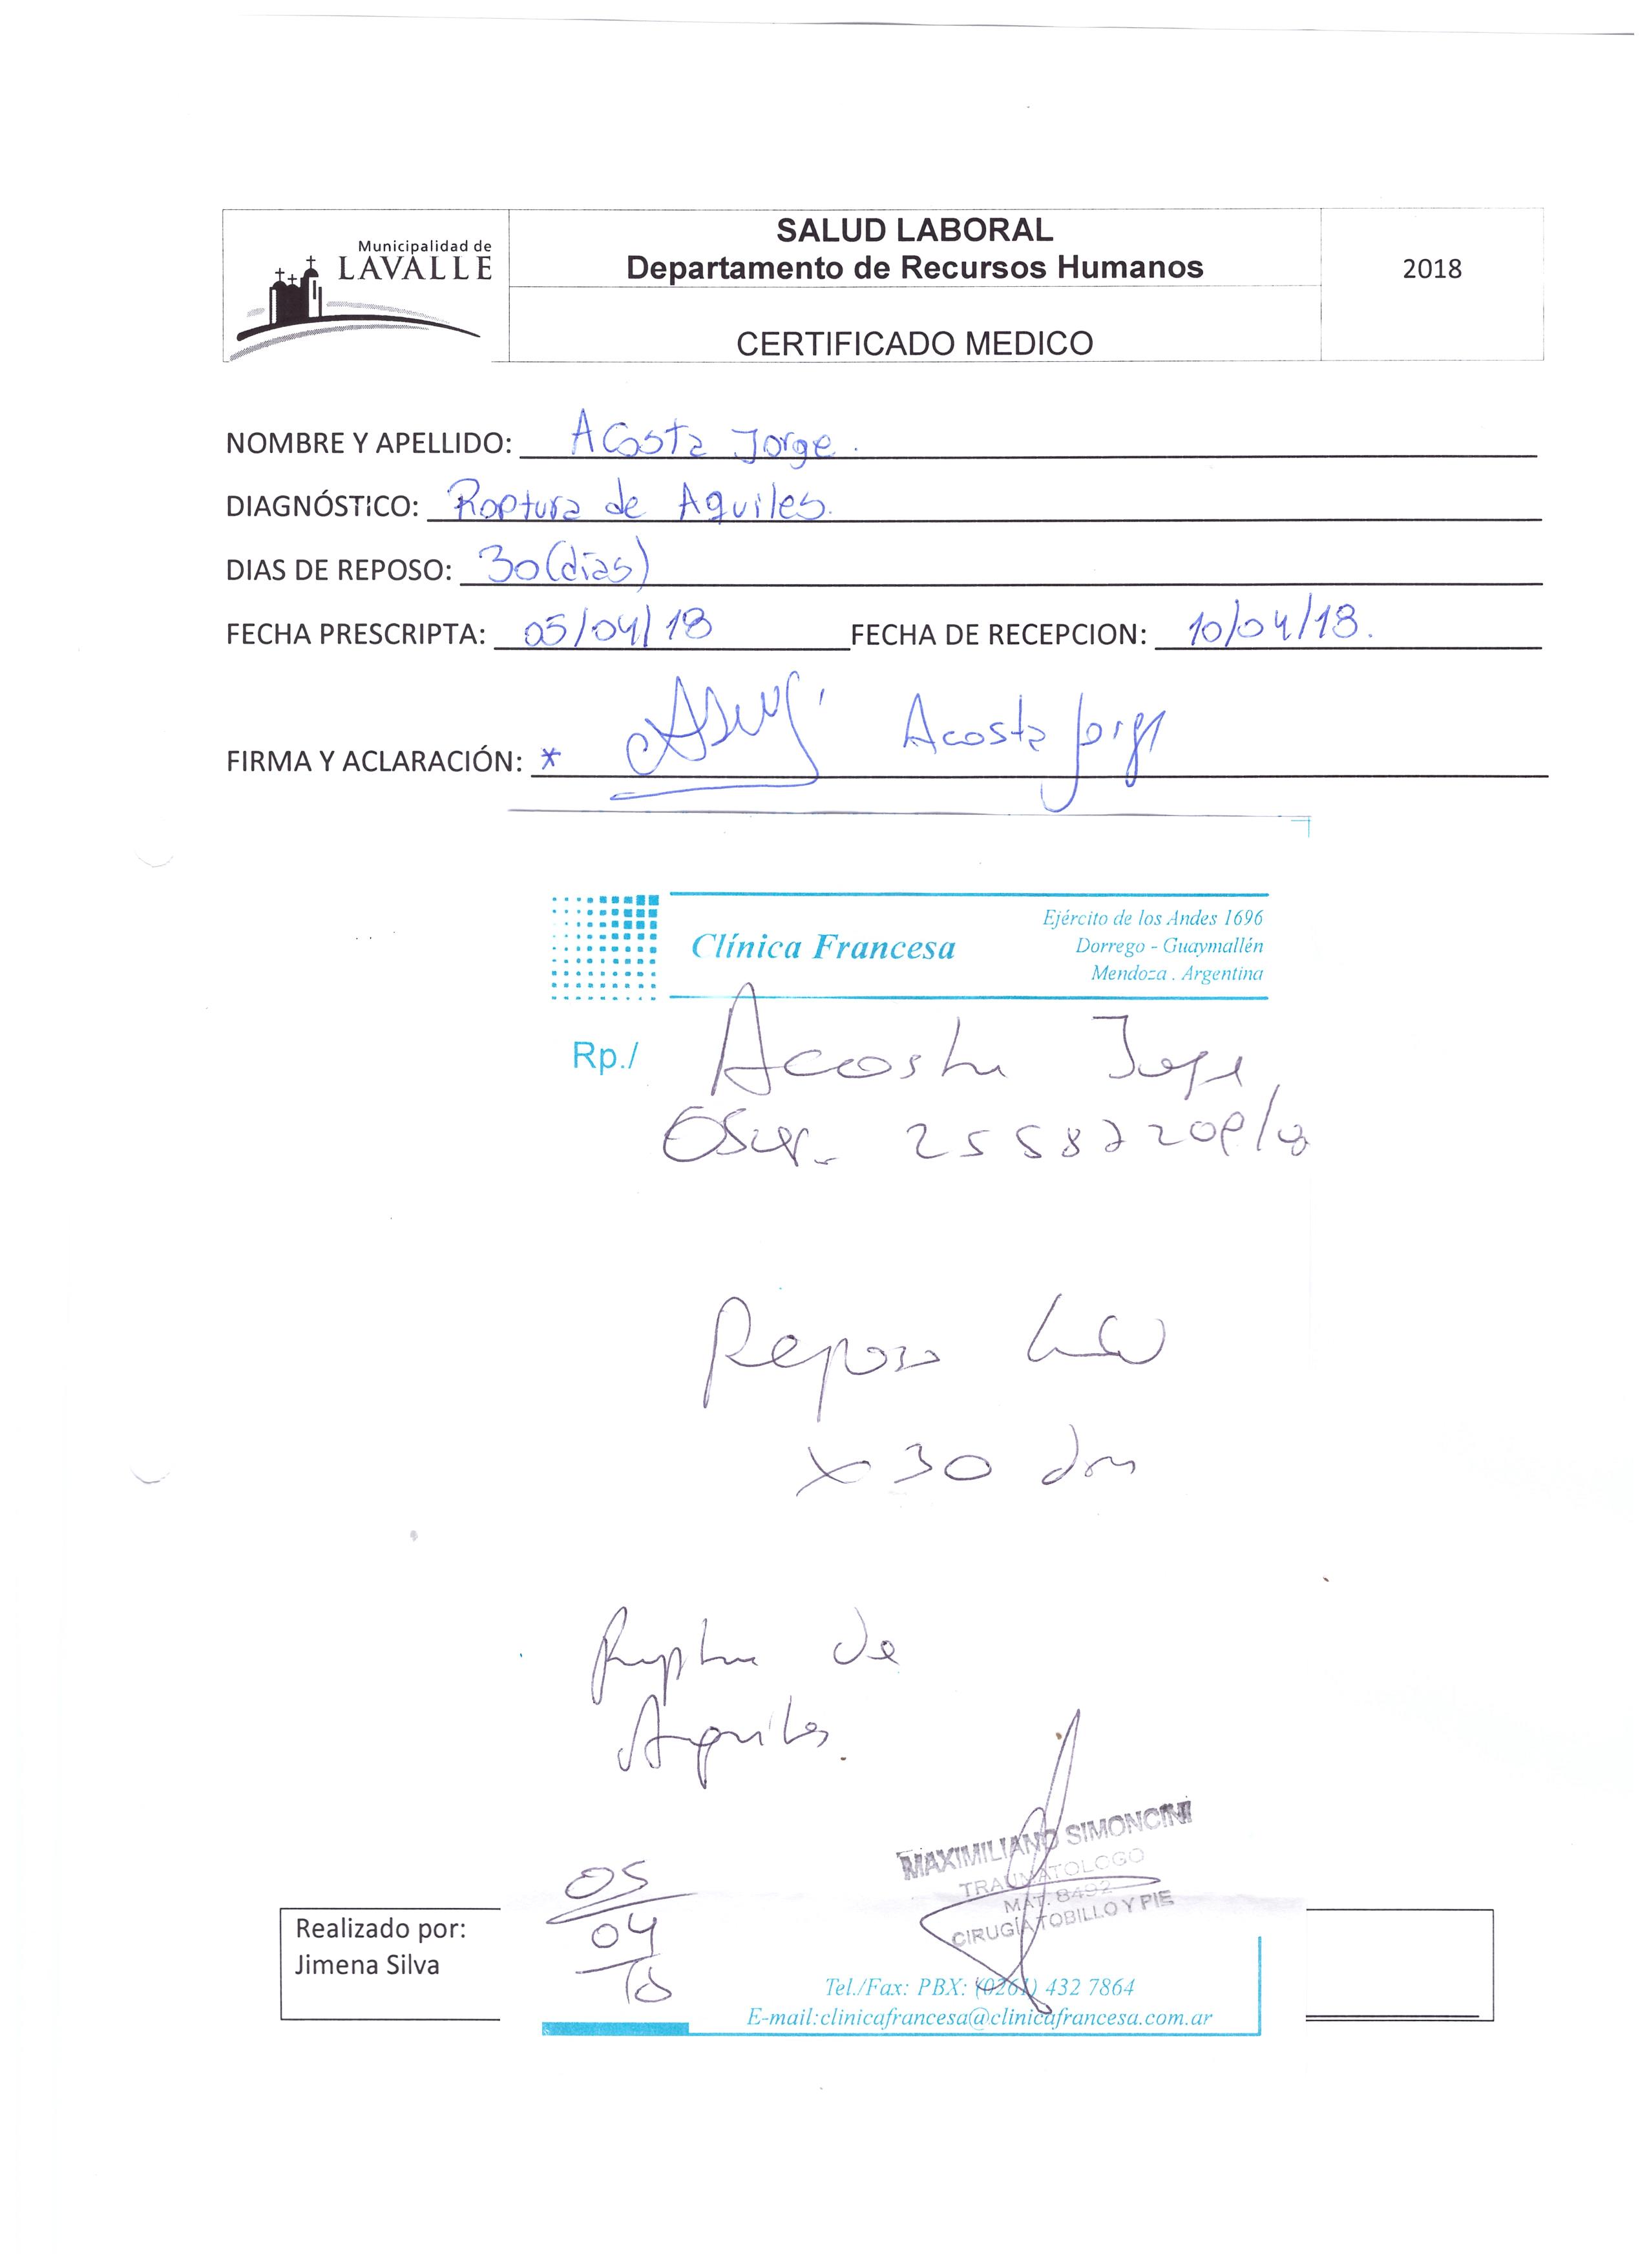 Municipalidad de
LAVALLE
SALUD LABORAL
Departamento de Recursos Humanos
2018
CERTIFICADO MEDICO
NOMBRE Y APELLIDO: Acosta Jorge.
DIAGNÓSTICO: Roptura de Aquiles.
DIAS DE REPOSO: 30 (días)
FECHA PRESCRIPTA: 05/04/18 FECHA DE RECEPCION: 10/04/18.
FIRMA Y ACLARACIÓN: * Acosta Jorge
Clínica Francesa
Ejército de los Andes 1696
Dorrego - Guaymallén
Mendoza . Argentina
Rp./ Acosta Jorge
Reposo
x 30
Ruptura de
Aquiles.
MAXIMILIANO SIMONCINI
TRAUMATOLOGO
MAT. 8492
CIRUGÍA TOBILLO Y PIE
05
04
18
Realizado por:
Jimena Silva
Tel./Fax: PBX: (0261) 432 7864
E-mail:clinicafrancesa@clinicafrancesa.com.ar